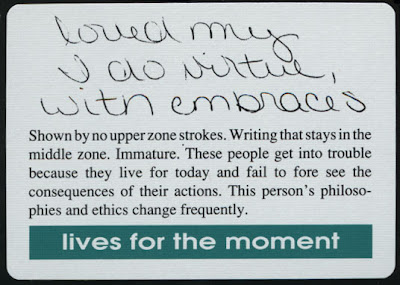 loved my
I do virtue,
with embraces
Shown by no upper zone strokes. Writing that stays in the
middle zone. Immature. These people get into trouble
because they live for today and fail to fore see the
consequences of their actions. This person's philoso-
phies and ethics change frequently.
lives for the moment